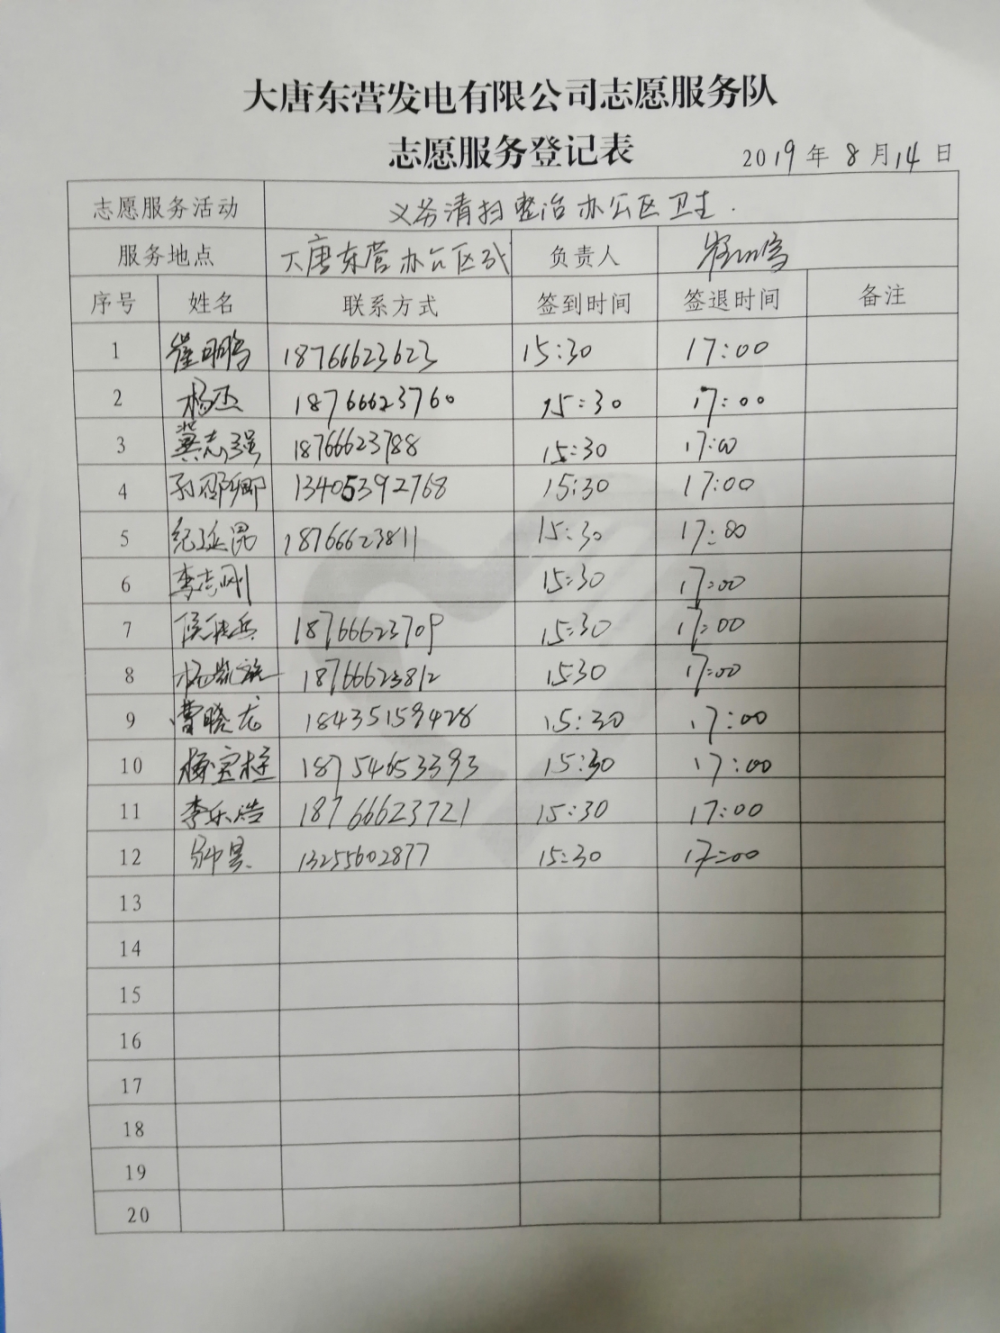 大唐东营发电有限公司志愿服务队
志愿服务登记表
2019年8月14日
志愿服务活动 义务清扫整治办公区卫生.
服务地点 大唐东营办公区域 负责人
序号 姓名 联系方式 签到时间 签退时间 备注
1 崔明鹏 18766623623 15:30 17:00
2 杨丕 18766623760 15:30 17:00
3 冀志强 18766623788 15:30 17:00
4 孙邵卿 13405392768 15:30 17:00
5 纪延昆 18766623811 15:30 17:00
6 李志刚 15:30 17:00
7 18766623709 15:30 17:00
8 杨凯旋 18766623812 15:30 17:00
9 曹晓龙 18435159428 15:30 17:00
10 梅宝柱 18754653393 15:30 17:00
11 李乐浩 18766623721 15:30 17:00
12 13255602877 15:30 17:00
13
14
15
16
17
18
19
20